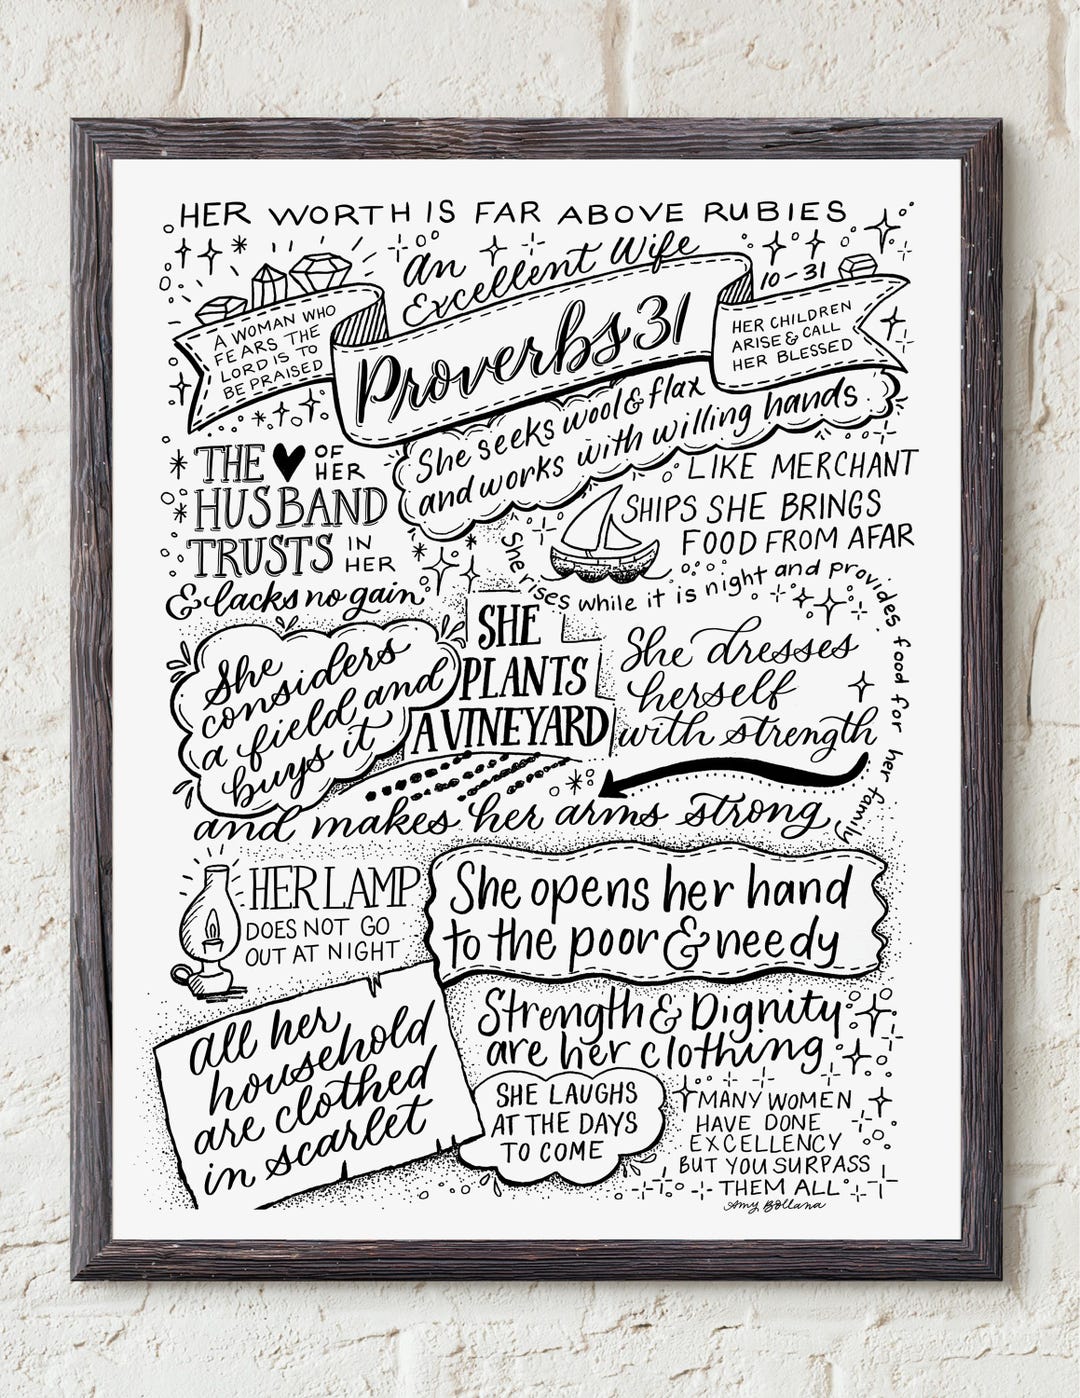 HER WORTH IS FAR ABOVE RUBIES
An
Excellent Wife
10-31
A WOMAN WHO
FEARS THE
LORD IS TO
BE PRAISED
Proverbs 31
HER CHILDREN
ARISE & CALL
HER BLESSED
She seeks wool & flax
and works with willing hands
THE ♥ OF HER
HUSBAND
TRUSTS IN HER
& lacks no gain
LIKE MERCHANT
SHIPS SHE BRINGS
FOOD FROM AFAR
She rises while it is night and provides food for her family
She
considers
a field and
buys it
SHE
PLANTS
A VINEYARD
She dresses
herself
with strength
and makes her arms strong
HER LAMP
DOES NOT GO
OUT AT NIGHT
She opens her hand
to the poor & needy
all her
household
are clothed
in scarlet
Strength & Dignity
are her clothing
SHE LAUGHS
AT THE DAYS
TO COME
MANY WOMEN
HAVE DONE
EXCELLENCY
BUT YOU SURPASS
THEM ALL
Amy Bollana